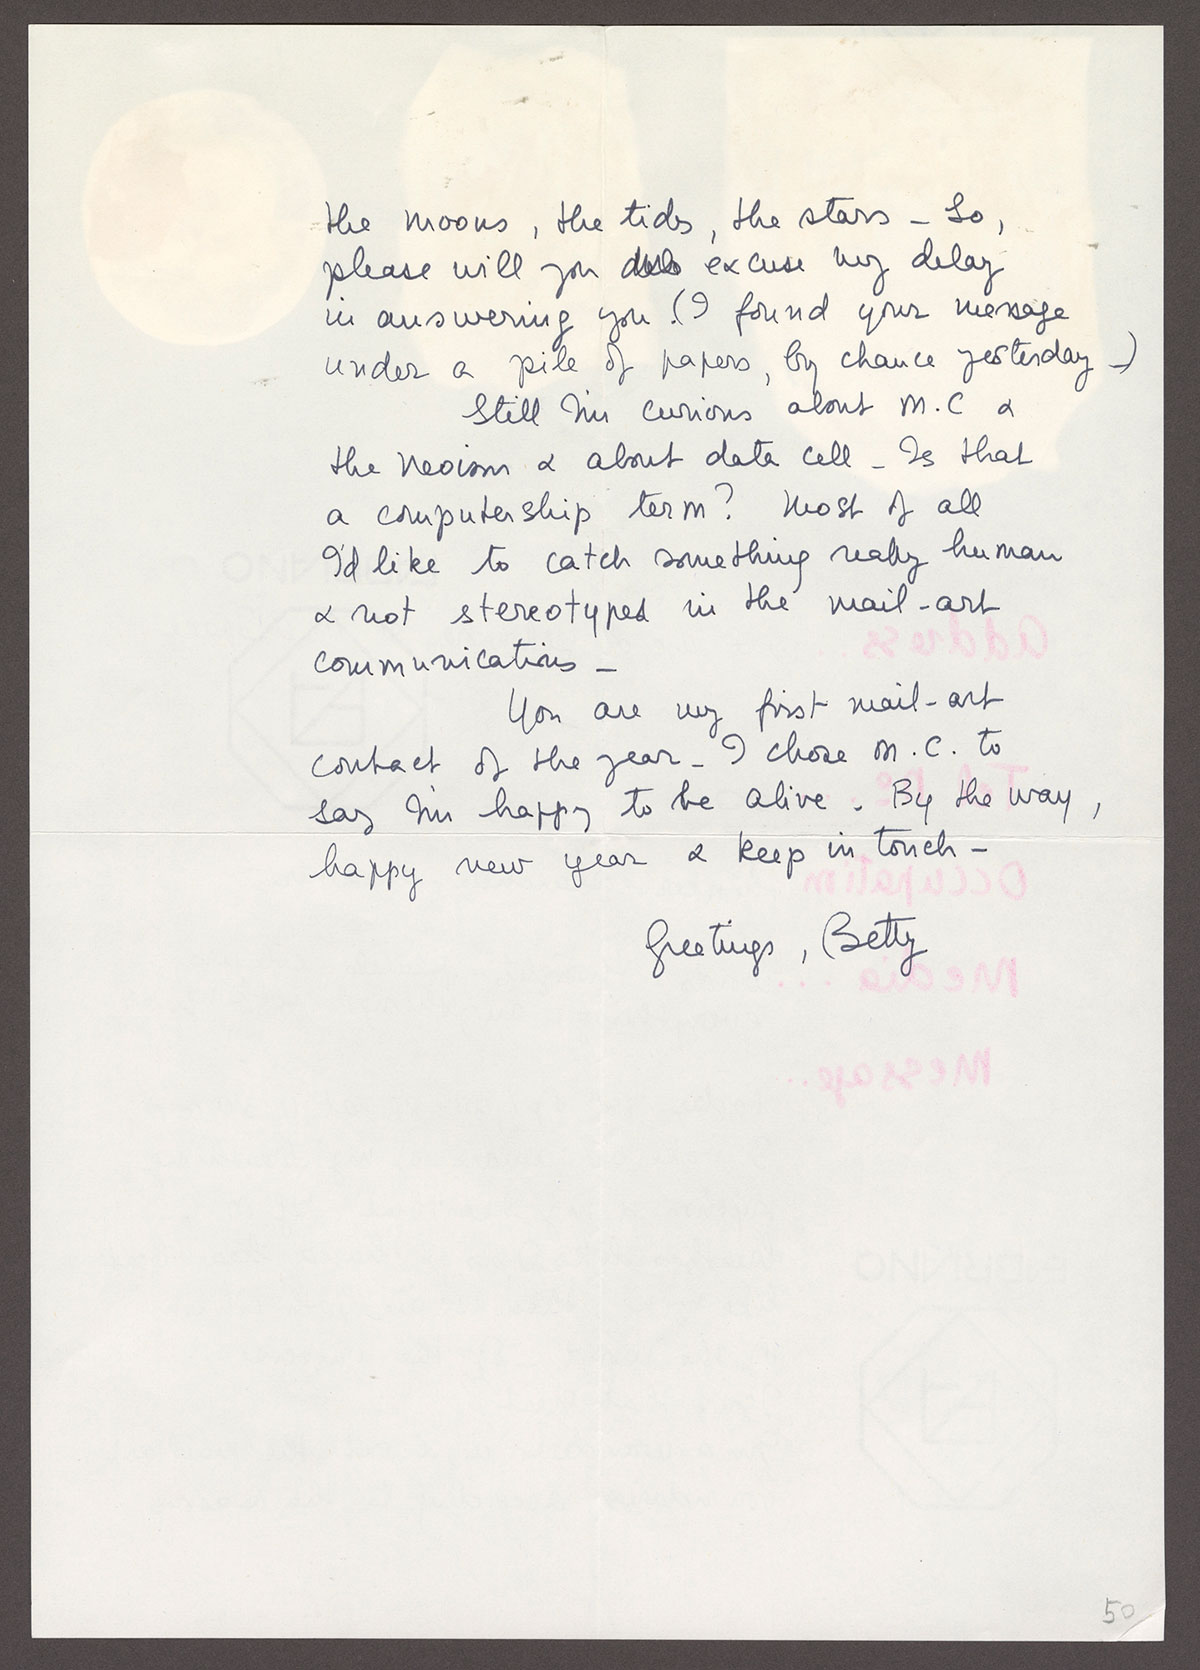 the moons, the tides, the stars - So,
please will you excuse my delay
in answering you! (I found your message
under a pile of papers, by chance yesterday -)
Still I'm curious about M.C &
the Neoism & about data cell - Is that
a computership term? Most of all
I'd like to catch something really human
& not stereotyped in the mail-art
communications -
You are my first mail-art
contact of the year - I chose M.C. to
say I'm happy to be alive. By the way,
happy new year & keep in touch -
Greetings, Betty
Address.
Occupation
Media ...
Message..
50